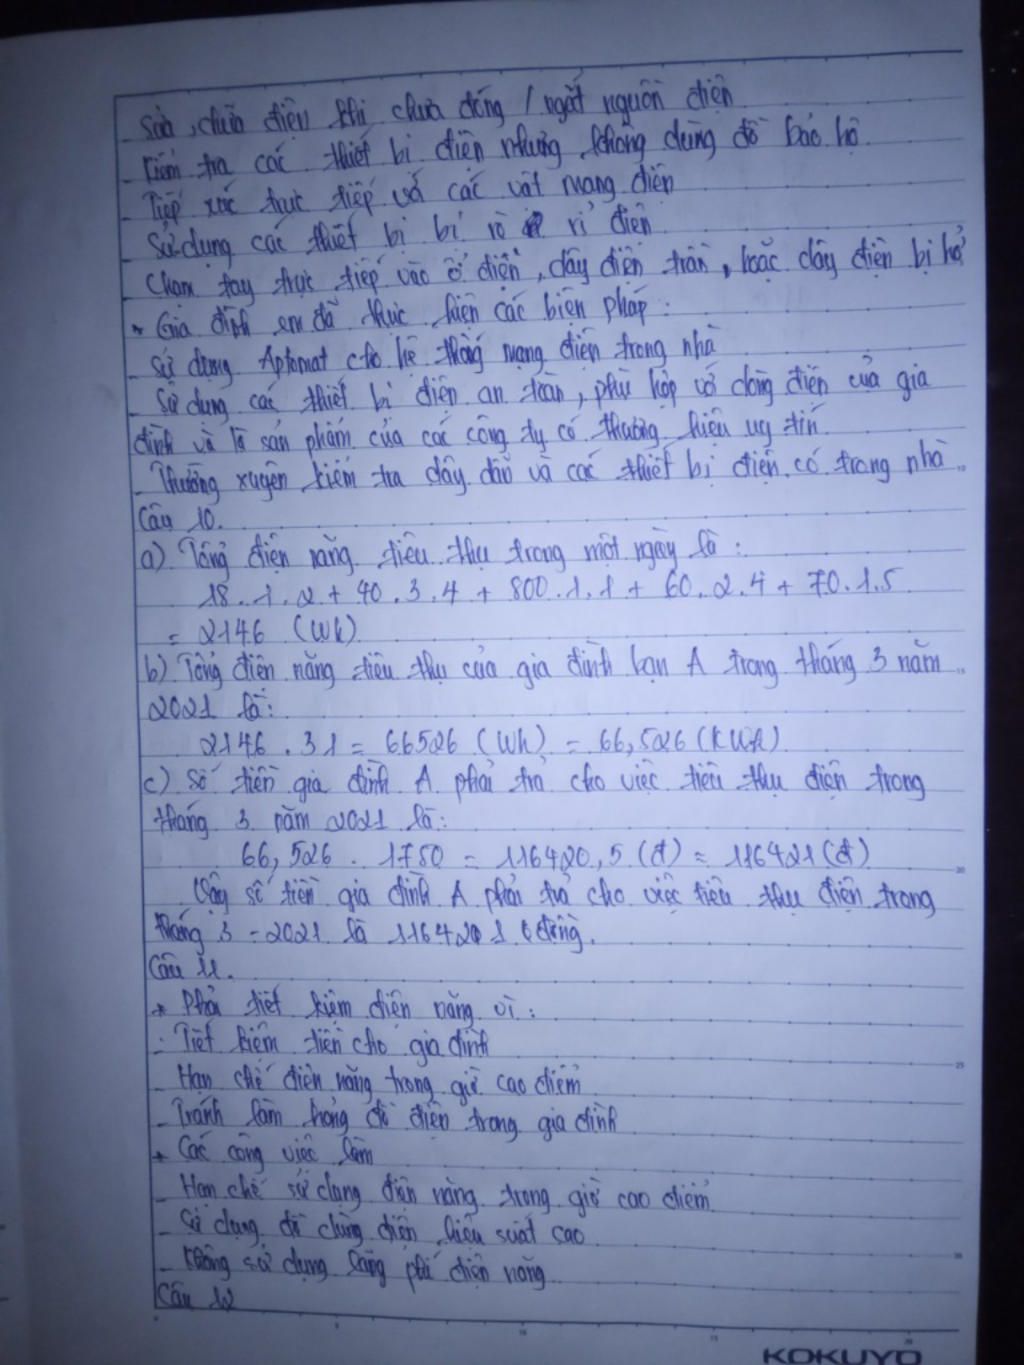 Sửa, chữa điện khi chưa đóng / ngắt nguồn điện
- Kiểm tra các thiết bị điện nhưng không dùng đồ bảo hộ.
- Tiếp xúc trực tiếp với các vật mang điện
- Sử dụng các thiết bị bị rò rỉ điện
- Chạm tay trực tiếp vào ổ điện, dây điện trần, hoặc dây điện bị hở
* Gia đình em đã thực hiện các biện pháp:
- Sử dụng Aptomat cho hệ thống mạng điện trong nhà
- Sử dụng các thiết bị điện an toàn, phù hợp với dòng điện của gia
đình và là sản phẩm của các công ty có thương hiệu uy tín.
- Thường xuyên kiểm tra dây dẫn và các thiết bị điện có trong nhà.
Câu 10.
a) Tổng điện năng tiêu thụ trong một ngày là:
18.1.2 + 40.3.4 + 800.1.1 + 60.2.4 + 70.1.5
= 2146 (Wh)
b) Tổng điện năng tiêu thụ của gia đình bạn A trong tháng 3 năm
2021 là:
2146 . 31 = 66526 (Wh) = 66,526 (kWh)
c) Số tiền gia đình A phải trả cho việc tiêu thụ điện trong
tháng 3 năm 2021 là:
66,526 . 1750 = 116420,5 (đ) ≈ 116421 (đ)
Vậy số tiền gia đình A phải trả cho việc tiêu thụ điện trong
tháng 3 - 2021 là đồng.
Câu 11.
* Phải tiết kiệm điện năng vì:
- Tiết kiệm tiền cho gia đình
- Hạn chế điện năng trong giờ cao điểm
- Tránh làm hỏng đồ điện trong gia đình
* Các công việc làm
- Hạn chế sử dụng điện năng trong giờ cao điểm
- Sử dụng đồ dùng điện hiệu suất cao
- Không sử dụng lãng phí điện năng
Câu 12
KOKUYO